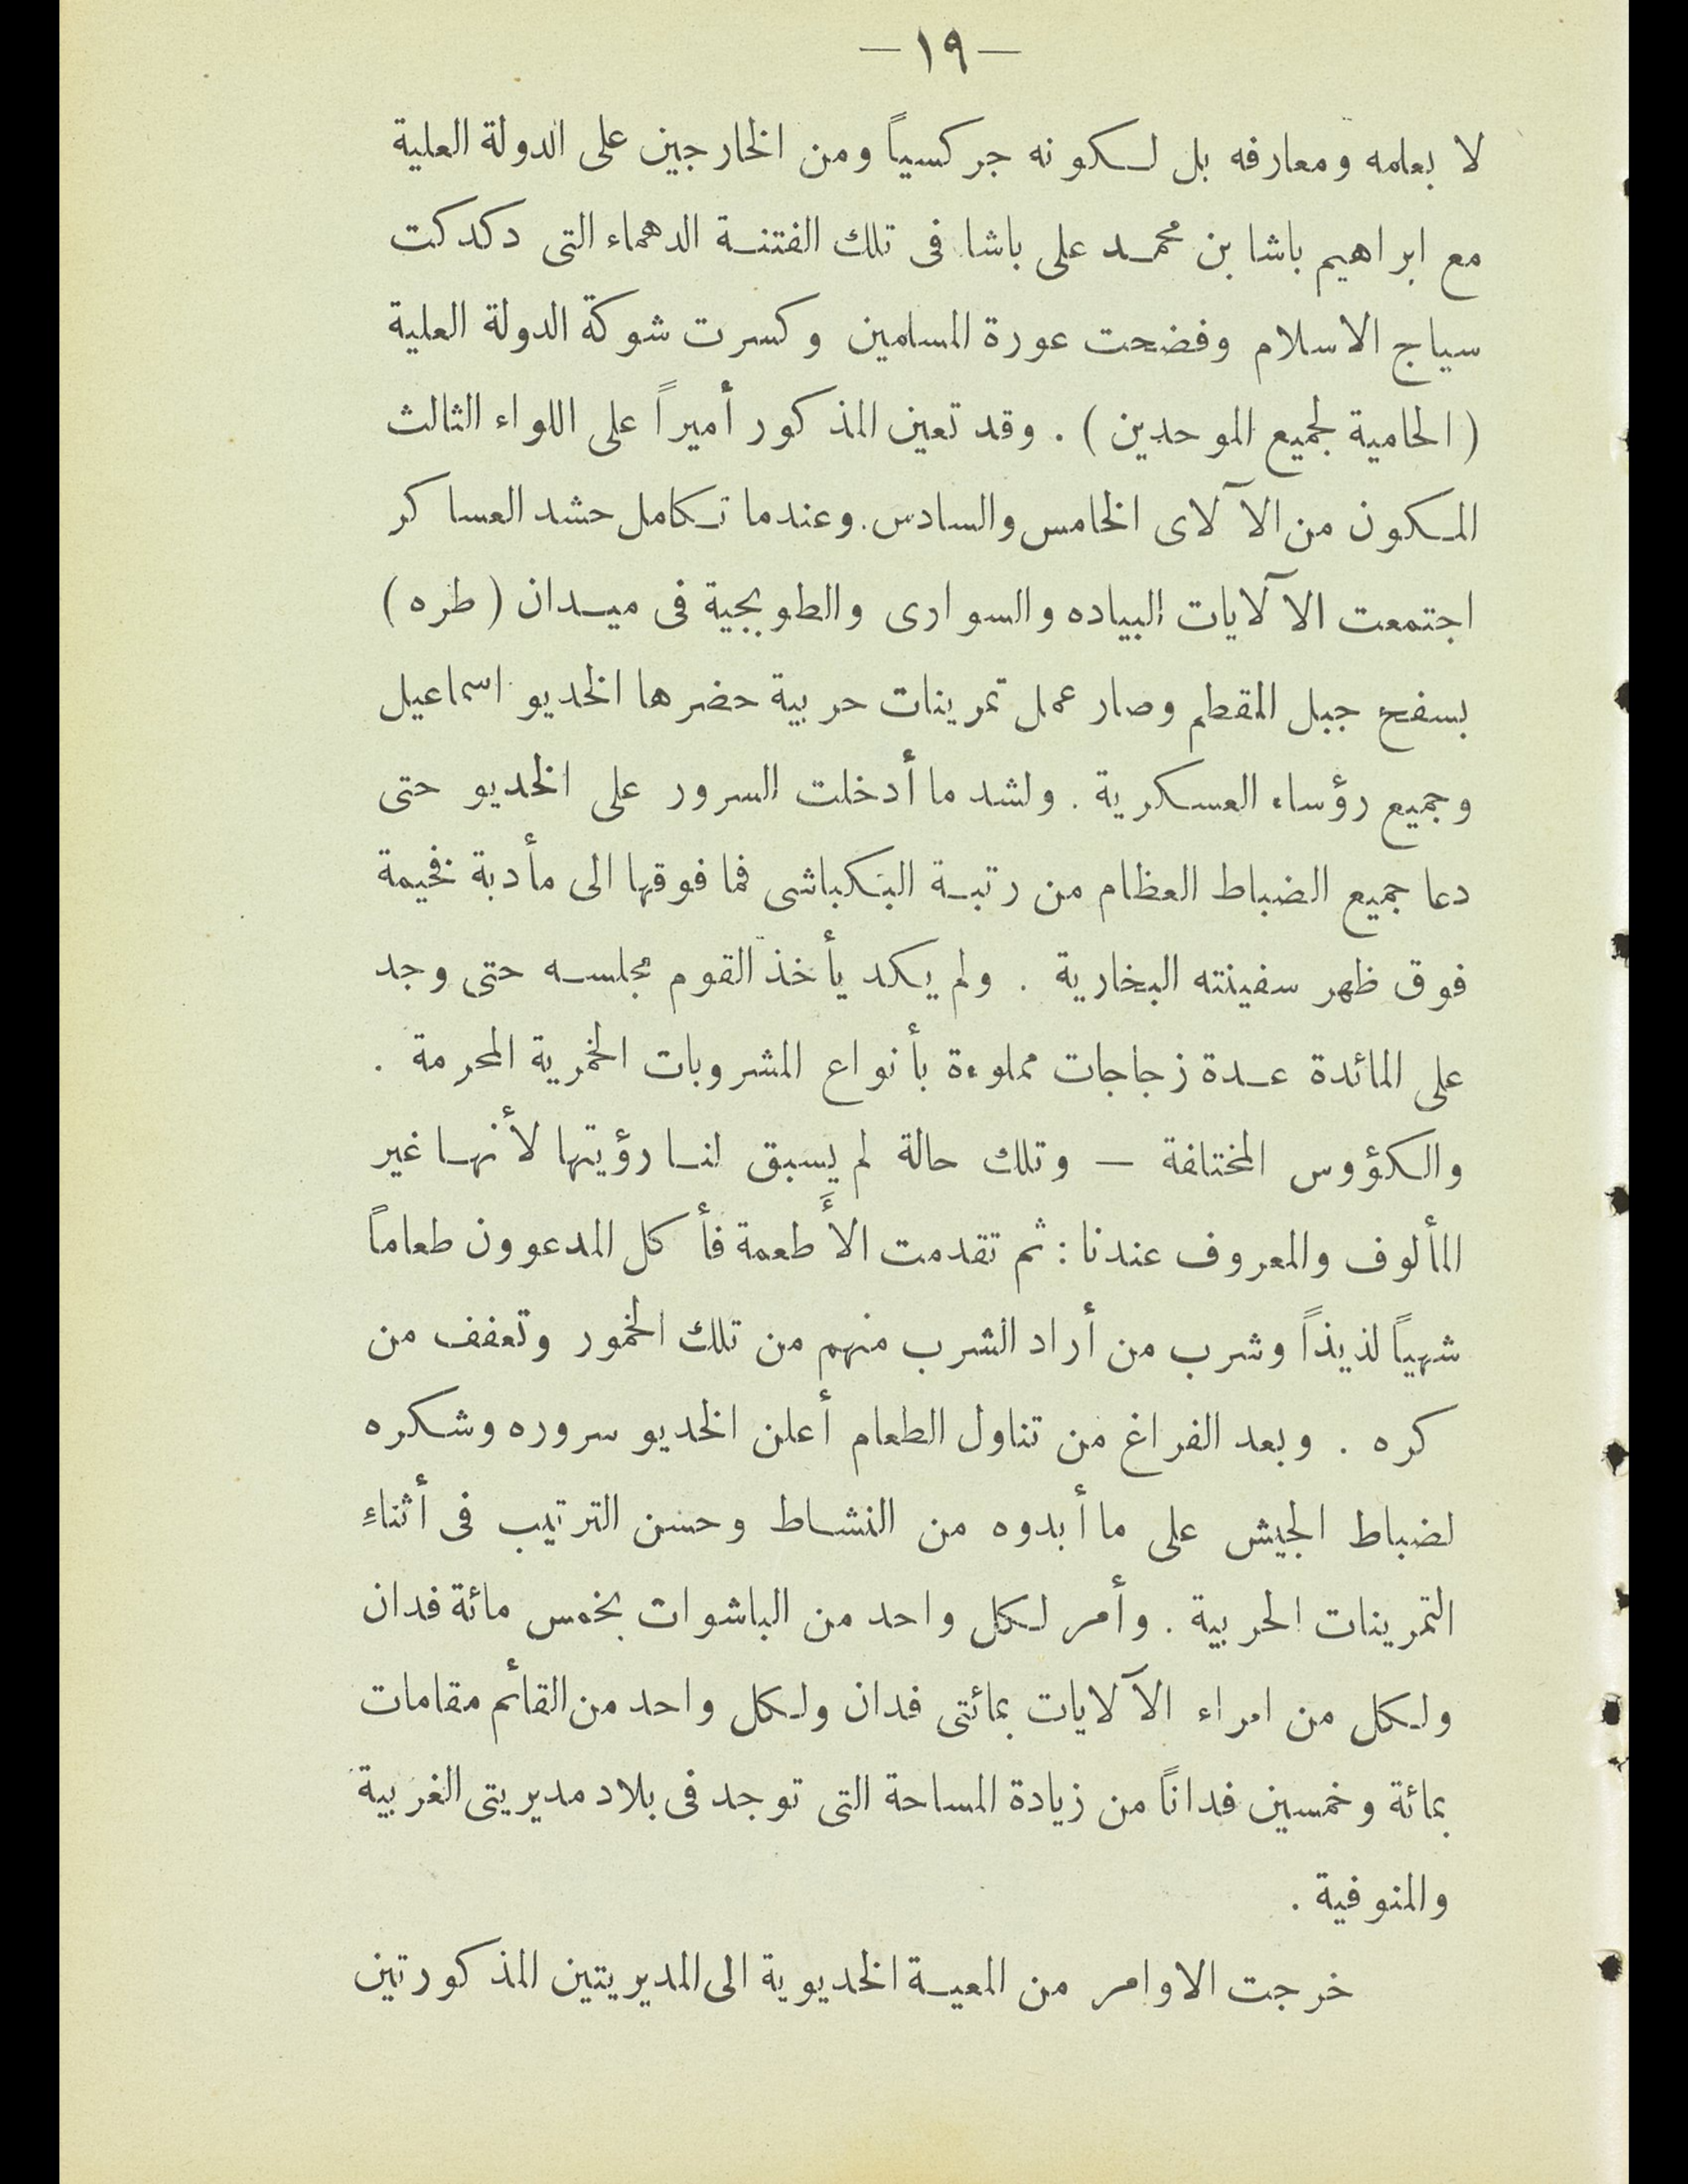 — ١٩ —
لا بعلمه ومعارفه بل لكونه جركسياً ومن الخارجين على الدولة العلية
مع ابراهيم باشا بن محمد على باشا فى تلك الفتنة الدهماء التى دكدكت
سياج الاسلام وفضحت عورة المسلمين وكسرت شوكة الدولة العلية
( الحامية لجميع الموحدين ) . وقد تعين المذكور أميراً على اللواء الثالث
المكون من الآلاى الخامس والسادس. وعندما تكامل حشد العساكر
اجتمعت الآلايات البياده والسوارى والطوبجية فى ميدان ( طره )
بسفح جبل المقطم وصار عمل تمرينات حربية حضرها الخديو اسماعيل
وجميع رؤساء العسكرية . ولشد ما أدخلت السرور على الخديو حتى
دعا جميع الضباط العظام من رتبة البنكباشى فما فوقها الى مأدبة فخيمة
فوق ظهر سفينته البخارية . ولم يكد يأخذ القوم مجلسه حتى وجد
على المائدة عدة زجاجات مملوءة بأنواع المشروبات الخمرية المحرمة .
والكؤوس المختلفة — وتلك حالة لم يسبق لنا رؤيتها لأنها غير
المألوف والمعروف عندنا : ثم تقدمت الأَطعمة فأكل المدعوون طعاماً
شهياً لذيذاً وشرب من أراد الشرب منهم من تلك الخمور وتعفف من
كره . وبعد الفراغ من تناول الطعام أعلن الخديو سروره وشكره
لضباط الجيش على ما أبدوه من النشاط وحسن الترتيب فى أثناءِ
التمرينات الحربية . وأمر لكل واحد من الباشوات بخمس مائة فدان
ولكل من امراء الآلايات بمائتى فدان ولكل واحد من القائم مقامات
بمائة وخمسين فداناً من زيادة المساحة التى توجد فى بلاد مديريتى الغربية
والمنوفية .
خرجت الاوامر من المعية الخديوية الى المديريتين المذكورتين